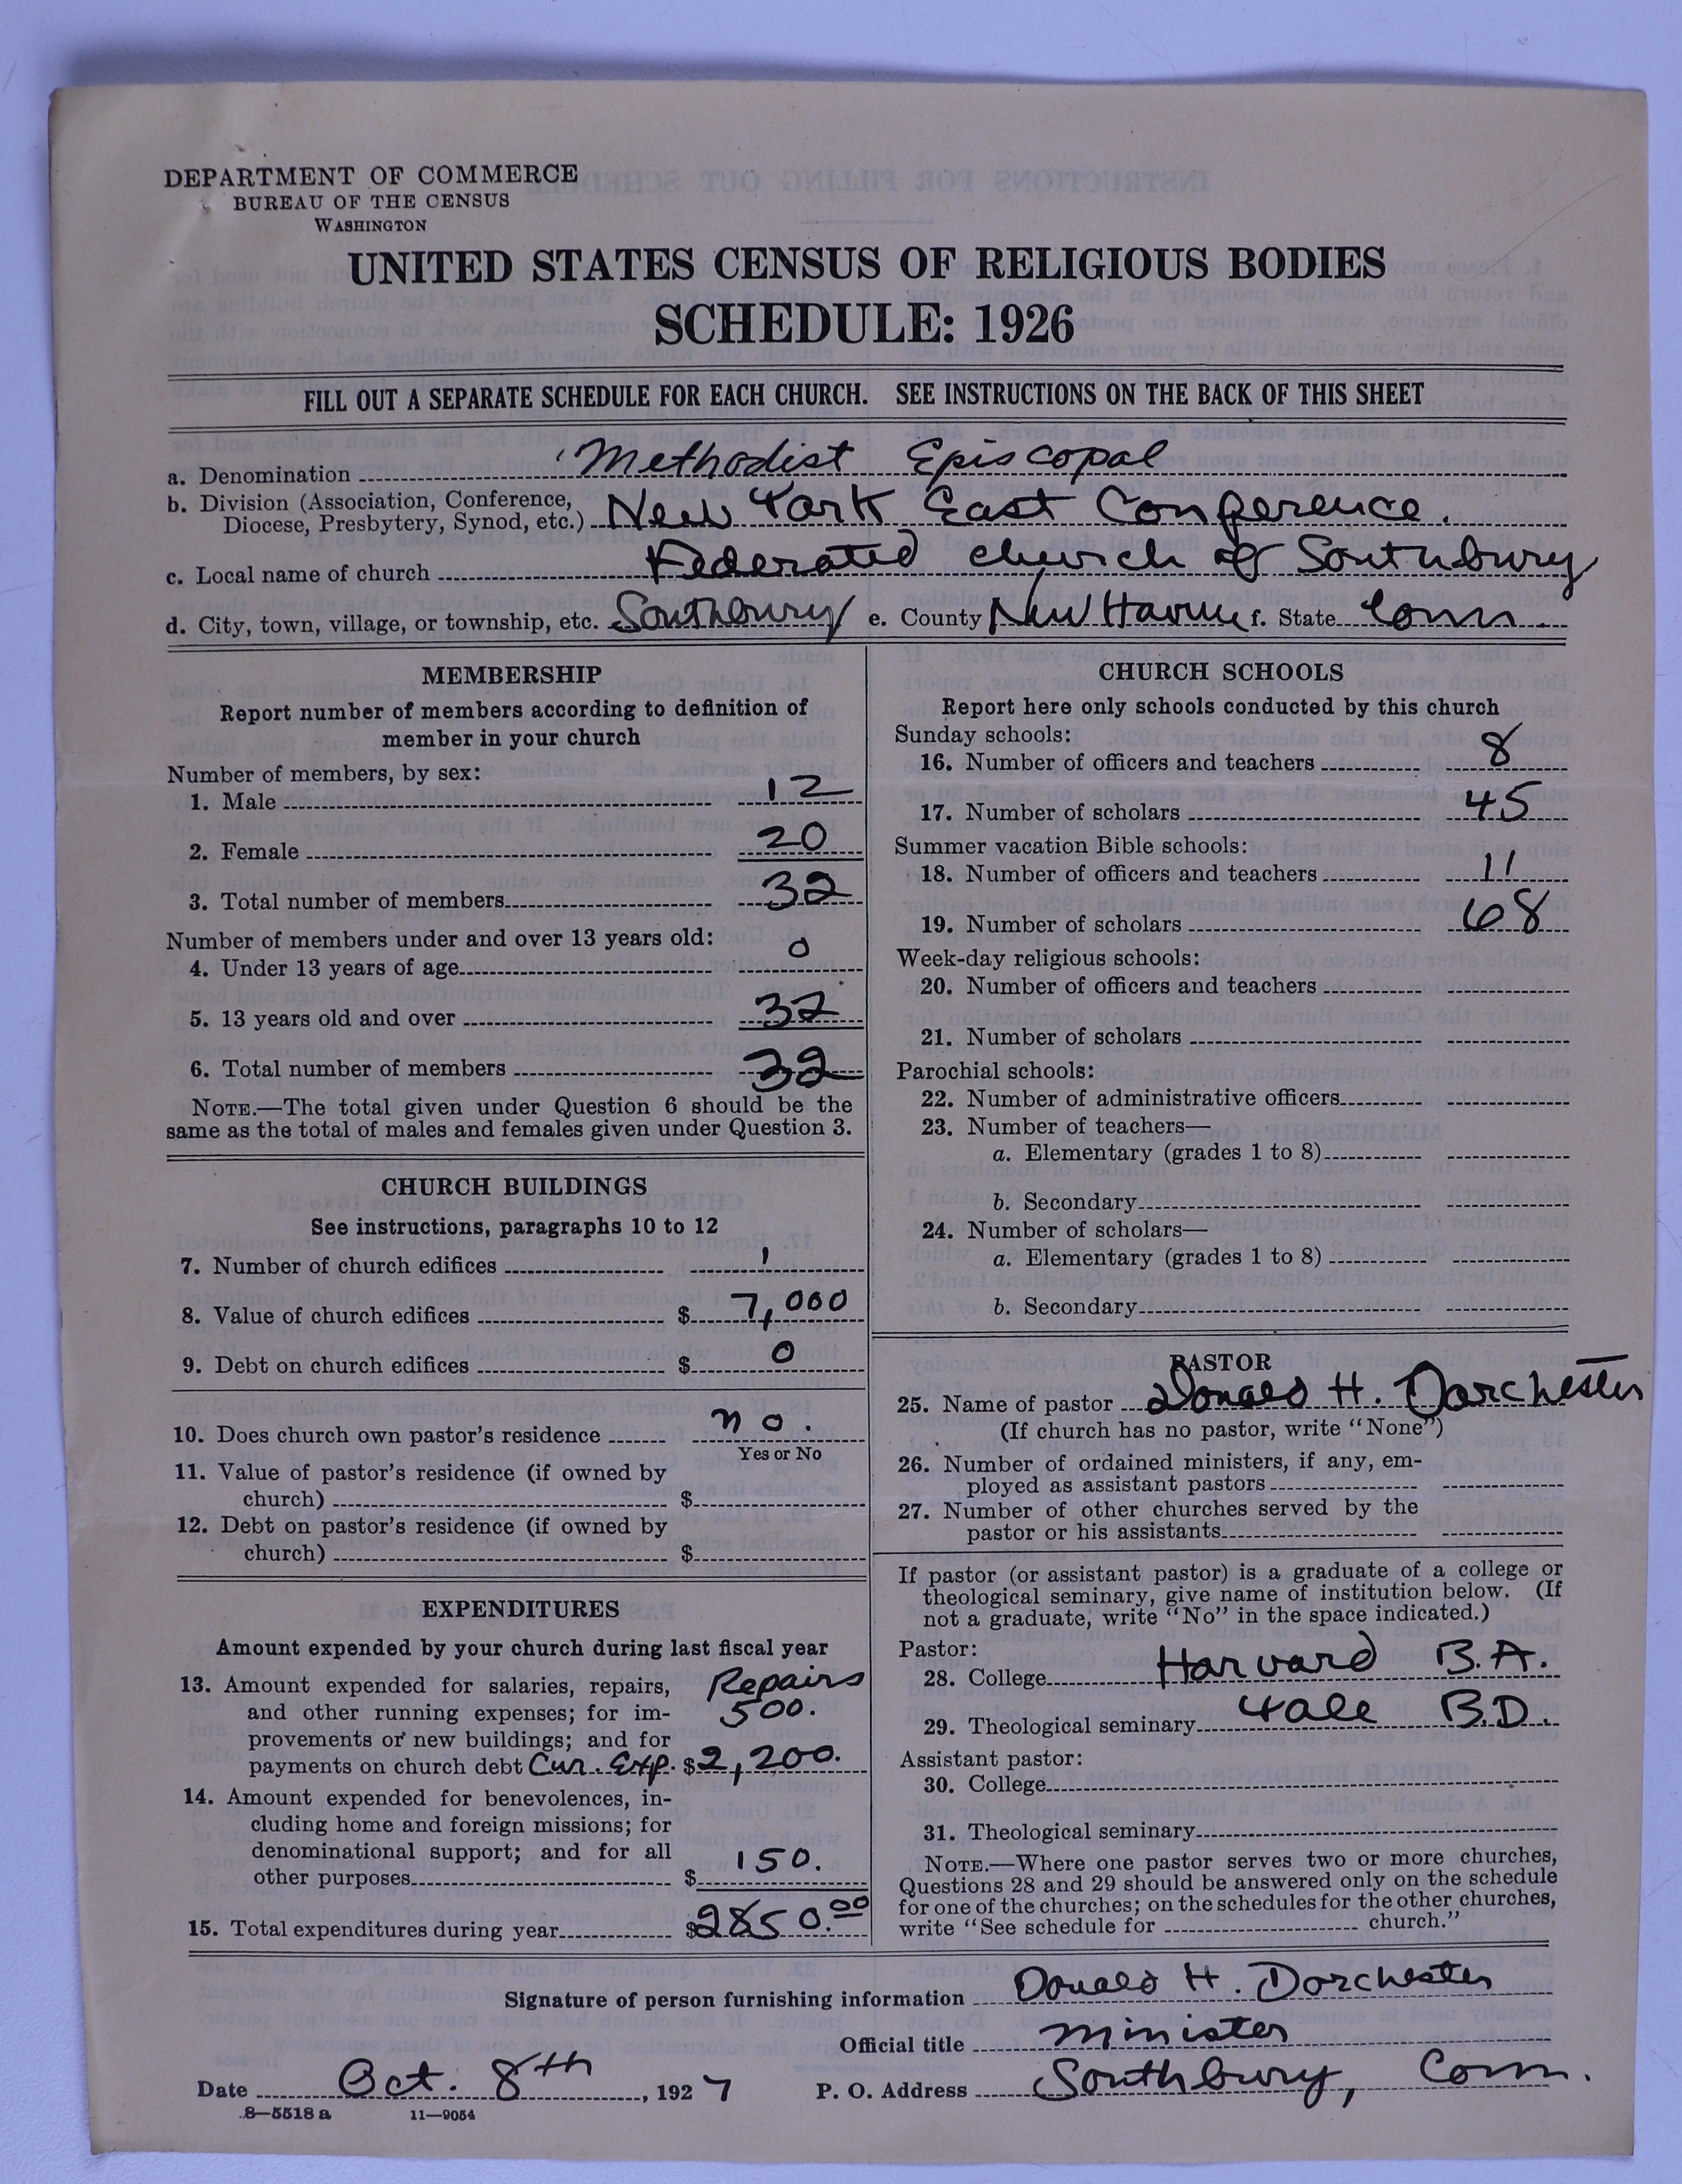 DEPARTMENT OF COMMERCE
BUREAU OF THE CENSUS
WASHINGTON
UNITED STATES CENSUS OF RELIGIOUS BODIES
SCHEDULE: 1926
FILL OUT A SEPARATE SCHEDULE FOR EACH CHURCH. SEE INSTRUCTIONS ON THE BACK OF THIS SHEET
a. Denomination Methodist Episcopal
b. Division (Association, Conference,
Diocese, Presbytery, Synod, etc.) New York East Conference.
c. Local name of church Federated church of Southbury
d. City, town, village, or township, etc. Southbury e. County New Haven f. State Conn.
MEMBERSHIP
Report number of members according to definition of
member in your church
Number of members, by sex:
1. Male 12
2. Female 20
3. Total number of members 32
Number of members under and over 13 years old:
4. Under 13 years of age 0
5. 13 years old and over 32
6. Total number of members 32
NOTE.—The total given under Question 6 should be the
same as the total of males and females given under Question 3.
CHURCH BUILDINGS
See instructions, paragraphs 10 to 12
7. Number of church edifices 1
8. Value of church edifices $ 7,000
9. Debt on church edifices $ 0
10. Does church own pastor's residence no.
Yes or No
11. Value of pastor's residence (if owned by
church) $
12. Debt on pastor's residence (if owned by
church) $
EXPENDITURES
Amount expended by your church during last fiscal year
13. Amount expended for salaries, repairs, Repairs
and other running expenses; for im- 500.
provements or new buildings; and for
payments on church debt Cur. Exp. $2,200.
14. Amount expended for benevolences, in-
cluding home and foreign missions; for
denominational support; and for all
other purposes $ 150.
15. Total expenditures during year $2850.00
CHURCH SCHOOLS
Report here only schools conducted by this church
Sunday schools:
16. Number of officers and teachers 8
17. Number of scholars 45
Summer vacation Bible schools:
18. Number of officers and teachers 11
19. Number of scholars 68
Week-day religious schools:
20. Number of officers and teachers
21. Number of scholars
Parochial schools:
22. Number of administrative officers
23. Number of teachers—
a. Elementary (grades 1 to 8)
b. Secondary
24. Number of scholars—
a. Elementary (grades 1 to 8)
b. Secondary
PASTOR
25. Name of pastor Donald H. Dorchester
(If church has no pastor, write "None")
26. Number of ordained ministers, if any, em-
ployed as assistant pastors
27. Number of other churches served by the
pastor or his assistants
If pastor (or assistant pastor) is a graduate of a college or
theological seminary, give name of institution below. (If
not a graduate, write "No" in the space indicated.)
Pastor:
28. College Harvard B.A.
29. Theological seminary Yale B.D.
Assistant pastor:
30. College
31. Theological seminary
NOTE.—Where one pastor serves two or more churches,
Questions 28 and 29 should be answered only on the schedule
for one of the churches; on the schedules for the other churches,
write "See schedule for church."
Signature of person furnishing information Donald H. Dorchester
Official title minister
Date Oct. 8th, 1927 P. O. Address Southbury, Conn.
8—5518 a 11—9054